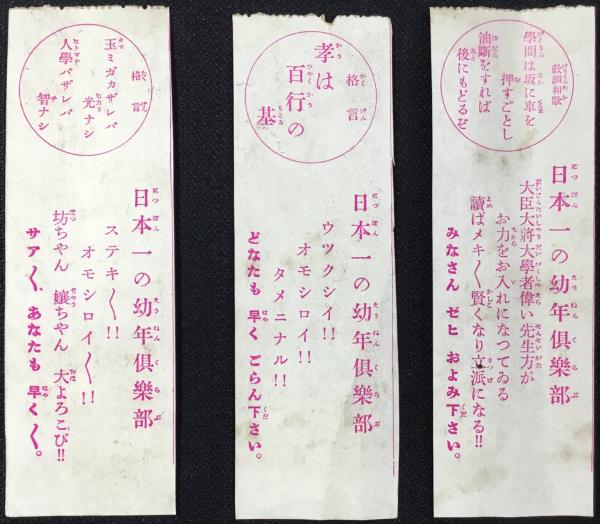 教訓和歌
學問は坂に車を
押すごとし
油斷をすれば
後にもどるぞ
日本一の幼年倶樂部
大臣大將大學者偉い先生方が
お力をお入れになつてゐる
讀ばメキ〱賢くなり立派になる!!
みなさん ゼヒ およみ下さい。
格言
孝は
百行の
基
日本一の幼年倶樂部
ウツクシイ!!
オモシロイ!!
タメニナル!!
どなたも 早く ごらん下さい。
格言
玉ミガカザレバ
光ナシ
人學バザレバ
智ナシ
日本一の幼年倶樂部
ステキ〱!!
オモシロイ〱!!
坊ちやん 孃ちやん 大よろこび!!
サア〱、あなたも 早く〱。